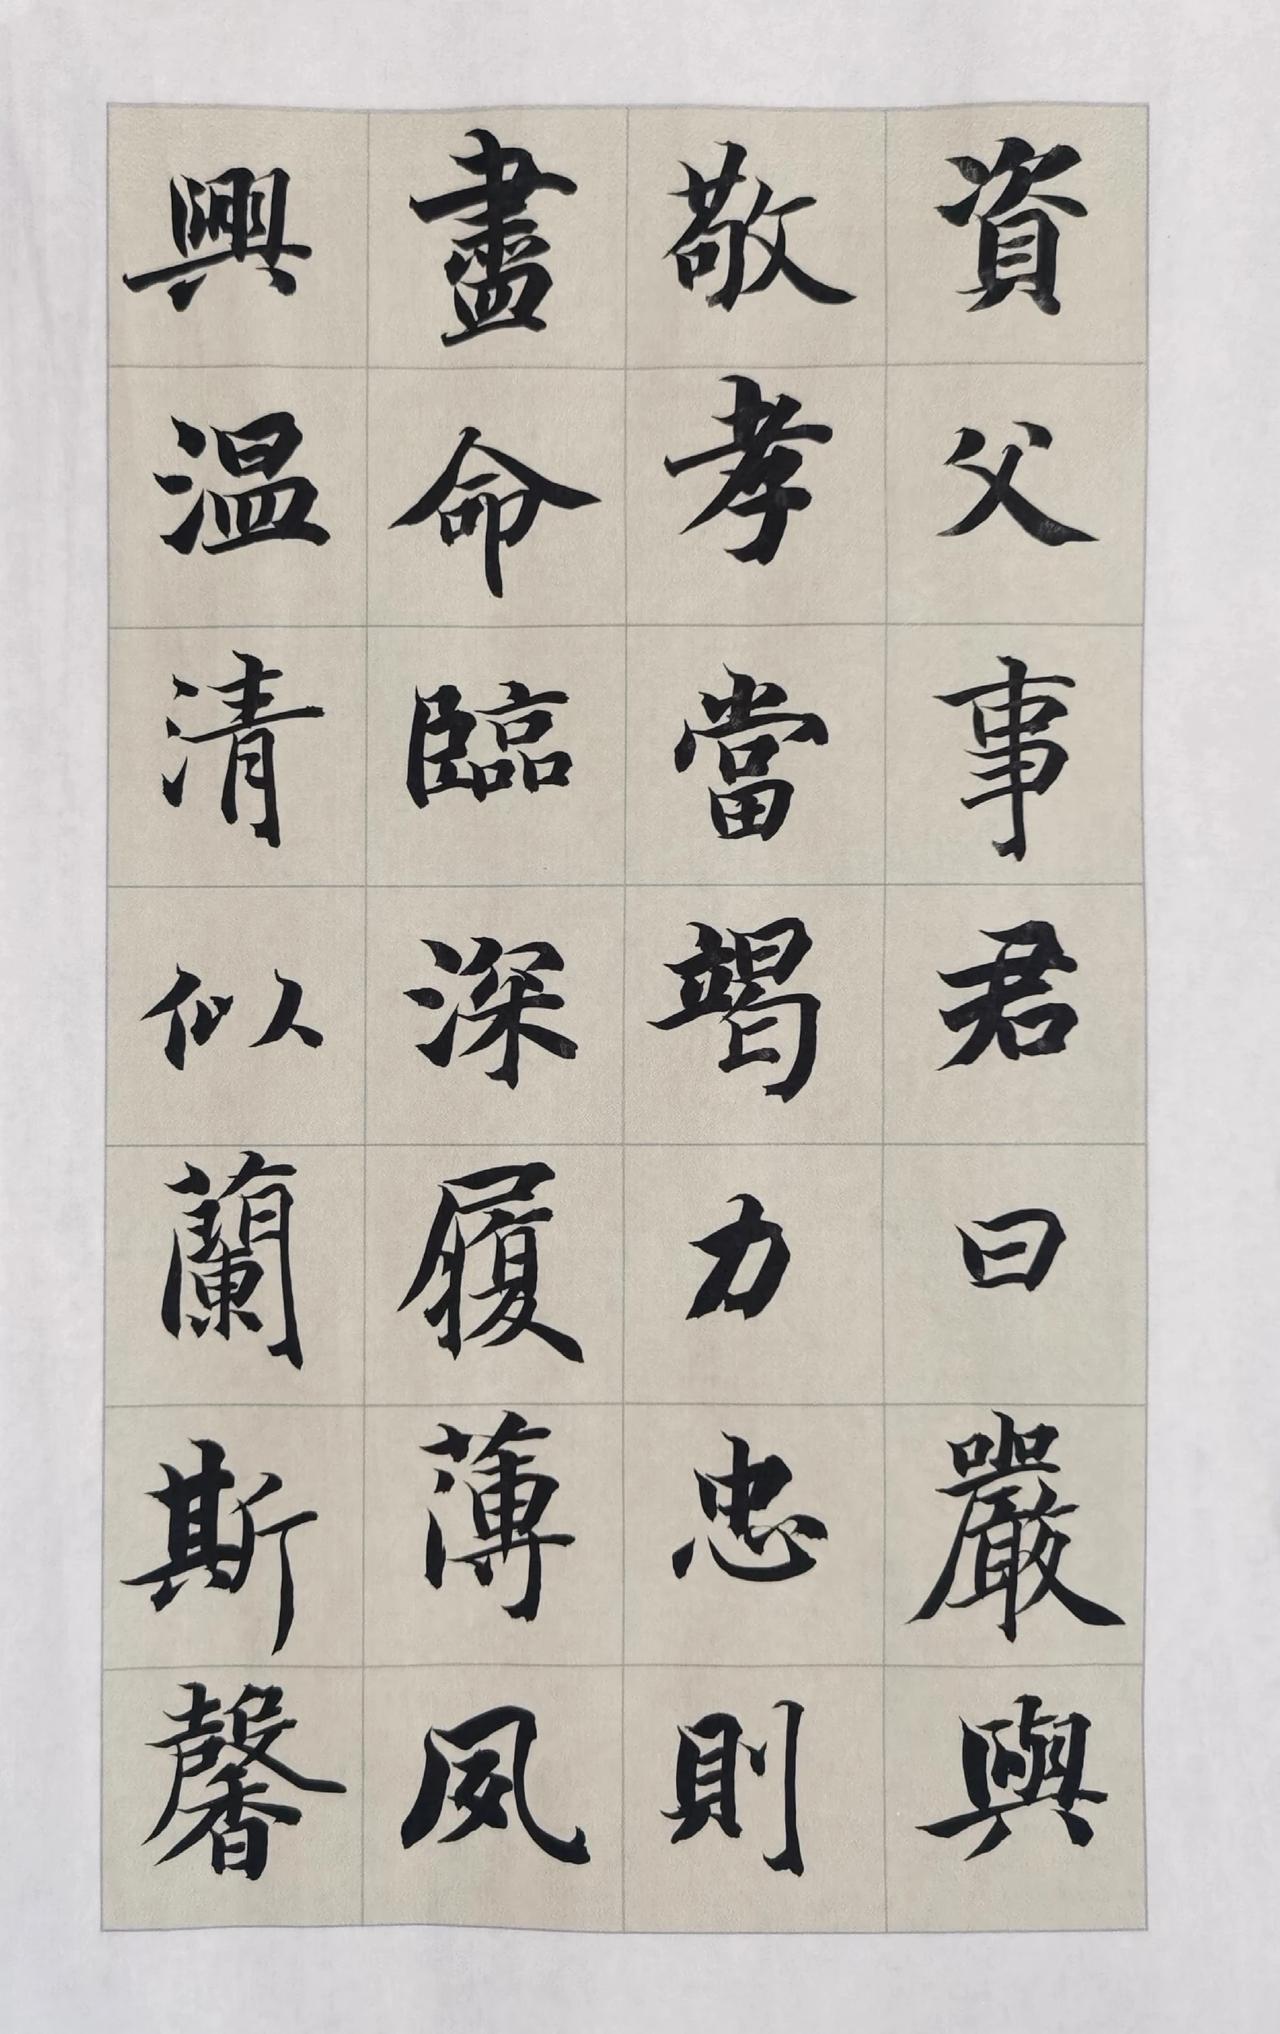 資父事君曰嚴與
敬孝當竭力忠則
盡命臨深履薄夙
興溫清似蘭斯馨